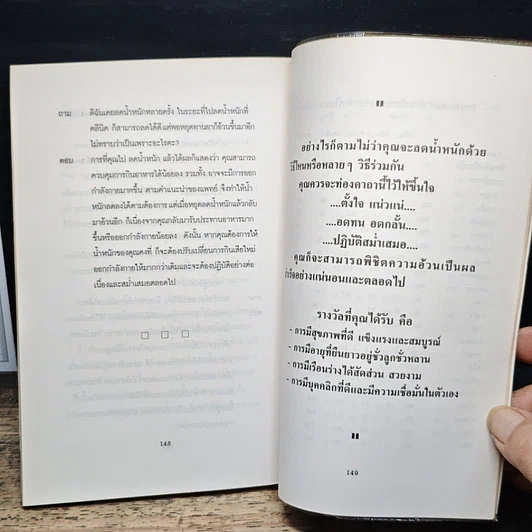 ถาม : ดิฉันเคยลดน้ำหนักหลายครั้ง ในระยะที่ไปลดน้ำหนักที่
คลินิค ก็สามารถลดได้ดีแต่พอหยุดทานยาก็อ้วนขึ้นมาอีก
ไม่ทราบว่าเป็นเพราะอะไรคะ?
ตอบ : การที่คุณไป ลดน้ำหนัก แล้วได้ผลก็แสดงว่า คุณสามารถ
ควบคุมการกินอาหารได้น้อยลง รวมทั้ง อาจจะมีการออก
กำลังกายมากขึ้น ตามคำแนะนำของแพทย์ จึงทำให้น้ำ
หนักลดลงได้ตามต้องการ แต่เมื่อหยุดลดน้ำหนักแล้วกลับ
มาอ้วนอีก ก็เนื่องจากคุณกลับมารับประทานอาหารมาก
ขึ้นหรือออกกำลังกายน้อยลง ดังนั้น หากคุณต้องการให้
น้ำหนักของคุณคงที่ ก็จะต้องปรับเปลี่ยนการกินเสียใหม่
ออกกำลังกายให้มากกว่าเดิมและจะต้องปฏิบัติอย่างต่อ
เนื่องและสม่ำเสมอตลอดไป
148
"
อย่างไรก็ตามไม่ว่าคุณจะลดน้ำหนักด้วย
วิธีไหนหรือหลาย ๆ วิธีร่วมกัน
คุณควรจะท่องคาถานี้ไว้ให้ขึ้นใจ
....ตั้งใจ แน่วแน่....
....อดทน อดกลั้น....
....ปฏิบัติสม่ำเสมอ....
คุณก็จะสามารถพิชิตความอ้วนเป็นผล
สำเร็จอย่างแน่นอนและตลอดไป
รางวัลที่คุณได้รับ คือ
- การมีสุขภาพที่ดี แข็งแรงและสมบูรณ์
- การมีอายุที่ยืนยาวอยู่ชั่วลูกชั่วหลาน
- การมีเรือนร่างได้สัดส่วน สวยงาม
- การมีบุคคลิกที่ดีและมีความเชื่อมั่นในตัวเอง
"
149